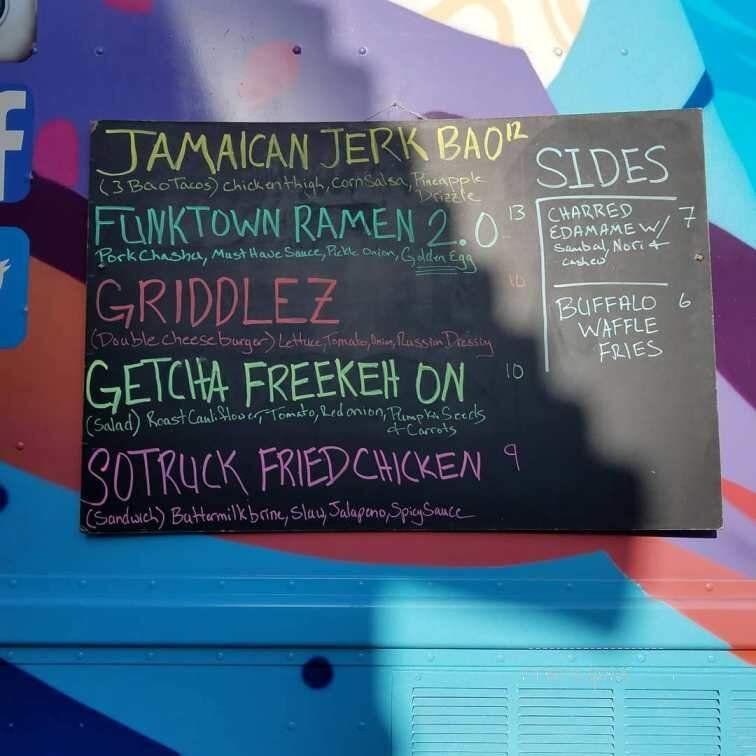 JAMAICAN JERK BAO 12
(3 Bao Tacos) chicken thigh, Corn Salsa, Pineapple
Drizzle
FUNKTOWN RAMEN 2.0 13
Pork Chashu, Must Have Sauce, Pickle Onion, Golden Egg
GRIDDLEZ 10
(Double cheese burger) Lettuce, Tomato, Onion, Russian Dressing
GETCHA FREEKEH ON 10
(Salad) Roast Cauliflower, Tomato, Red onion, Pumpkin Seeds
& Carrots
SOTRUCK FRIED CHICKEN 9
(Sandwich) Buttermilk brine, Slaw, Jalapeno, Spicy Sauce
SIDES
CHARRED 7
EDAMAME W/
Sambal, Nori &
cashew
BUFFALO 6
WAFFLE
FRIES